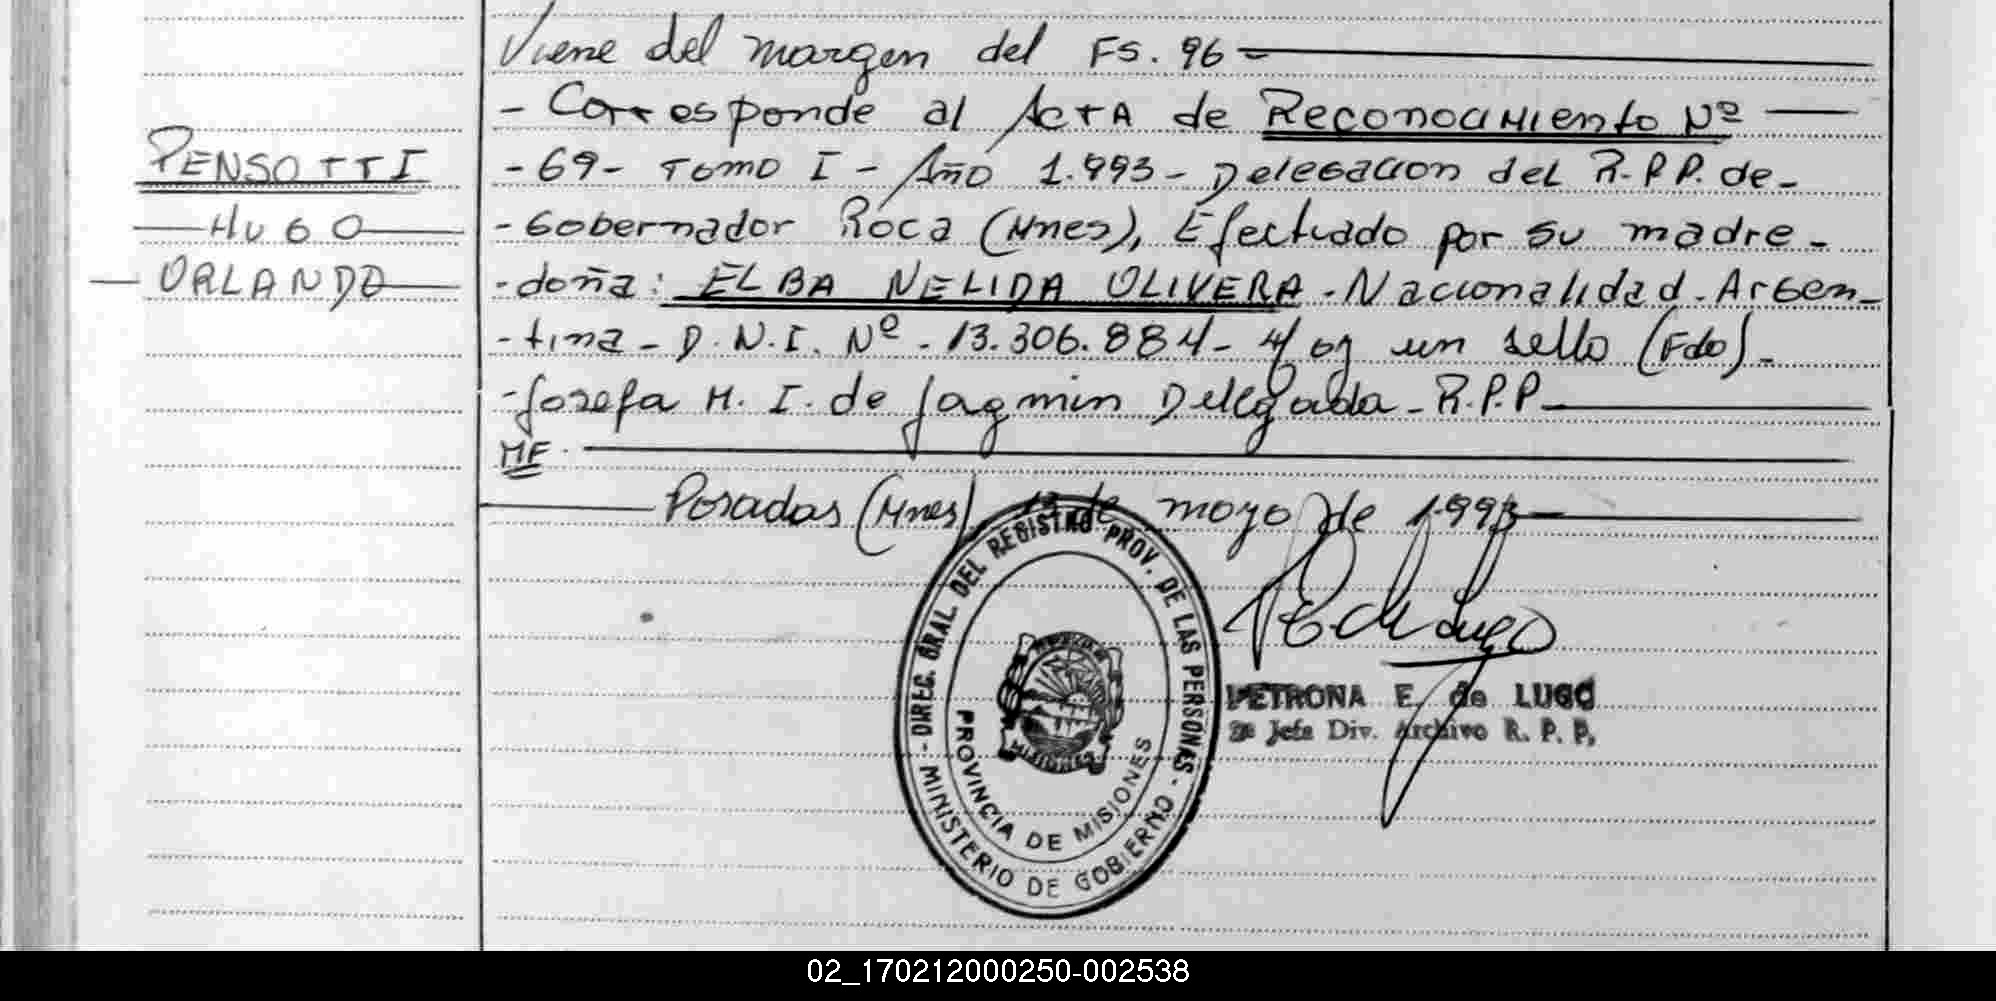 Viene del margen del FS. 96
- Corresponde al ActA de Reconocimiento Nº
PENSOTTI
- 69 - Tomo I - Año 1.993 - Delegacion del R.P.P. de -
HUGO
- Gobernador Roca (Mnes), Efectuado por su madre -
ORLANDO
- doña: ELBA NELIDA OLIVERA - Nacionalidad - Argen-
- tina - D.N.I. Nº - 13.306.884 - un sello (Fdo) -
- Josefa M. I. de Jagmin Delegada - R.P.P
MF.
Posadas (Mnes), de mayo de 1.993
DIREC. GRAL. DEL REGISTRO PROV. DE LAS PERSONAS
MINISTERIO DE GOBIERNO
PROVINCIA DE MISIONES
MISIONES
PETRONA E. de LUGO
2ª Jefa Div. Archivo R. P. P.
02_170212000250-002538